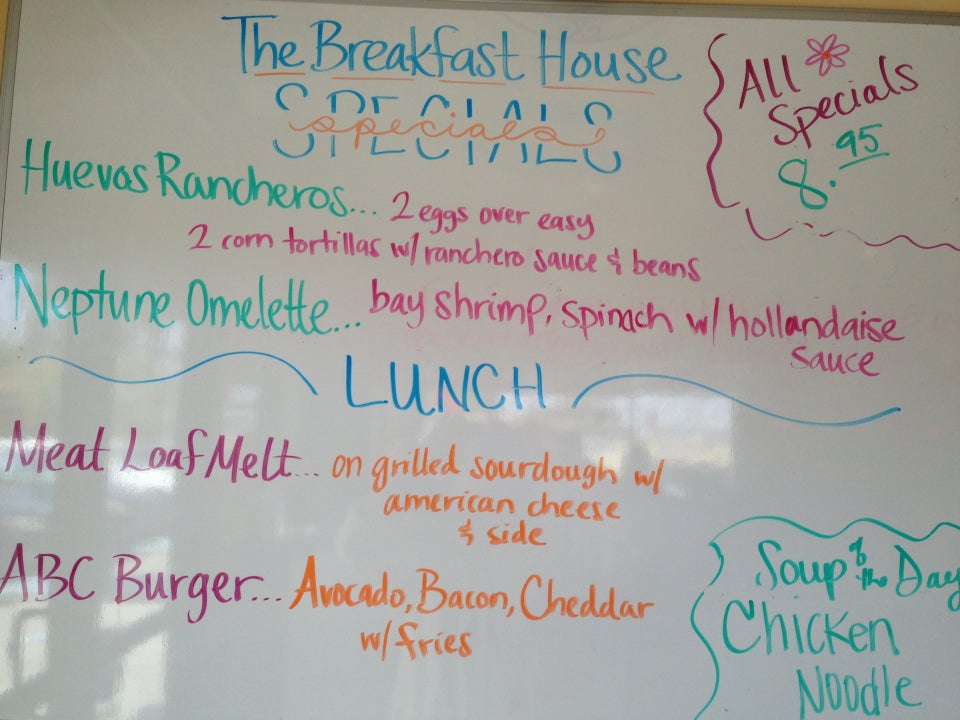 The Breakfast House
SPECIALS
specials
All
Specials
8.95
Huevos Rancheros... 2 eggs over easy
2 corn tortillas w/ ranchero sauce & beans
Neptune Omelette... bay shrimp, spinach w/ hollandaise
sauce
LUNCH
Meat Loaf Melt... on grilled sourdough w/
american cheese
& side
ABC Burger... Avocado, Bacon, Cheddar
w/ fries
Soup of the Day
Chicken
Noodle